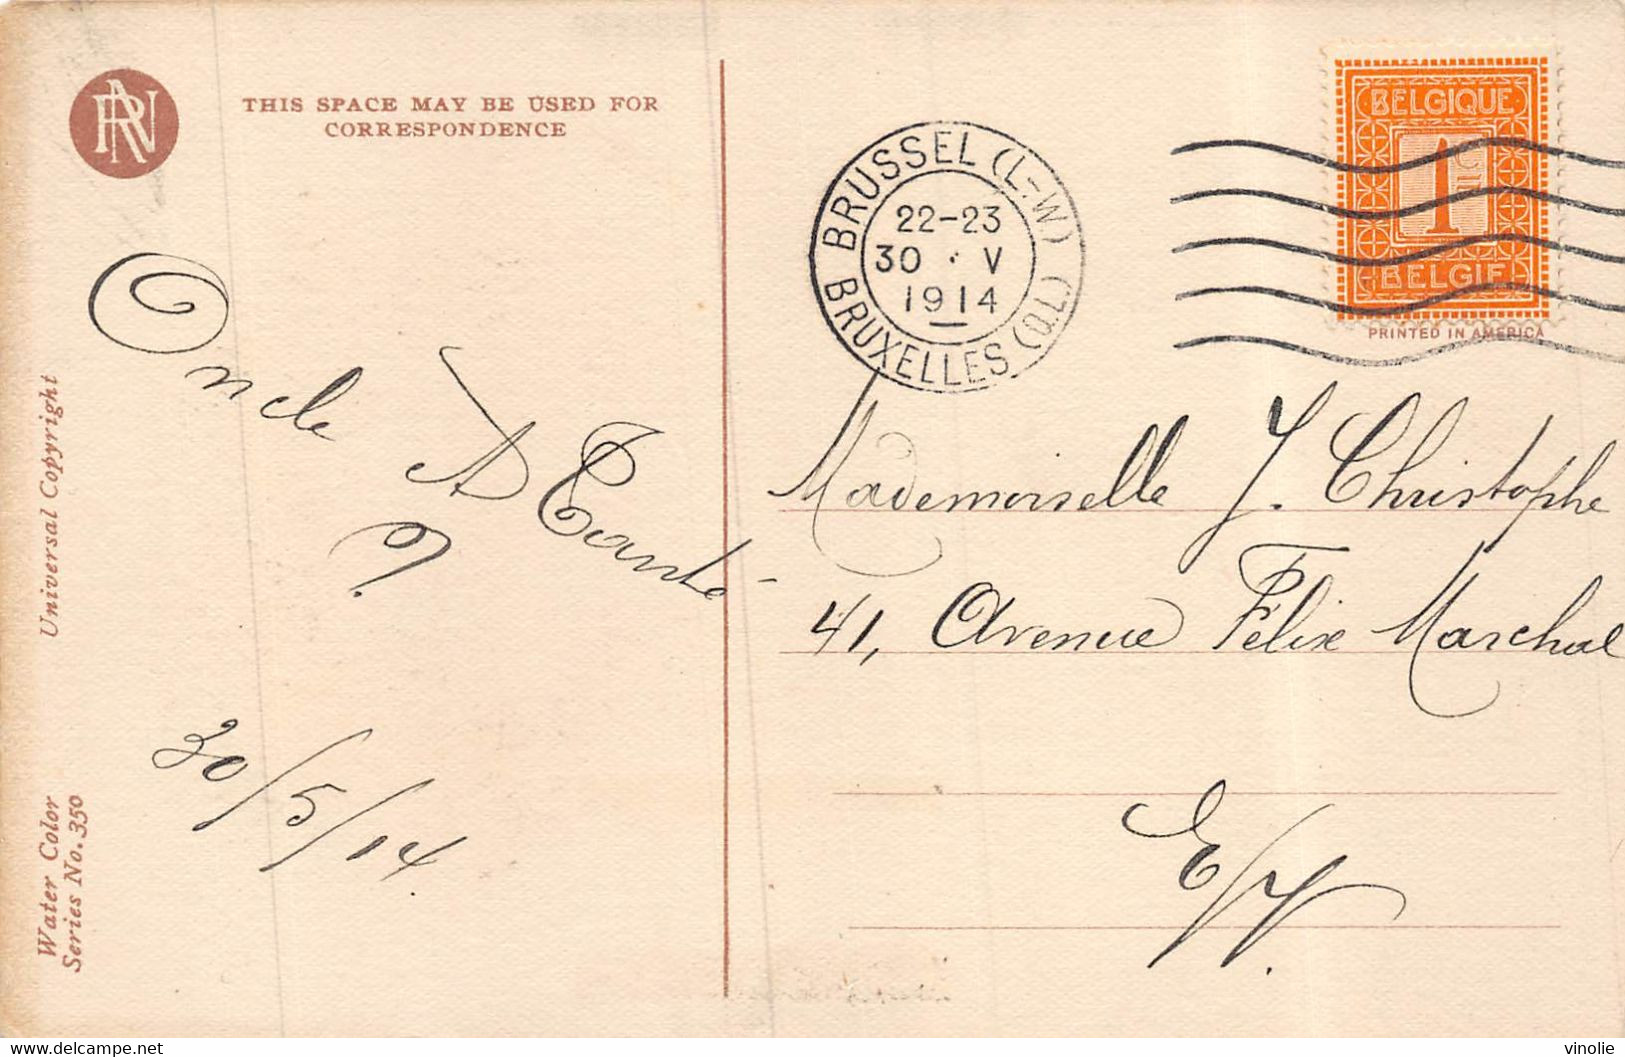 RN
THIS SPACE MAY BE USED FOR
CORRESPONDENCE
BRUSSEL (L-W)
22-23
30 · V
1914
BRUXELLES (Q.L.)
BELGIQUE
1
BELGIE
PRINTED IN AMERICA
Oncle
Tante
30/5/14.
Mademoiselle J. Christophe
41, Avenue Felix Marchal
E/V.
Universal Copyright
Water Color
Series No. 350
delcampe.net
vinolie